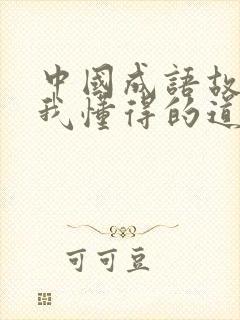 中國成語故
我懂得的道
可可豆